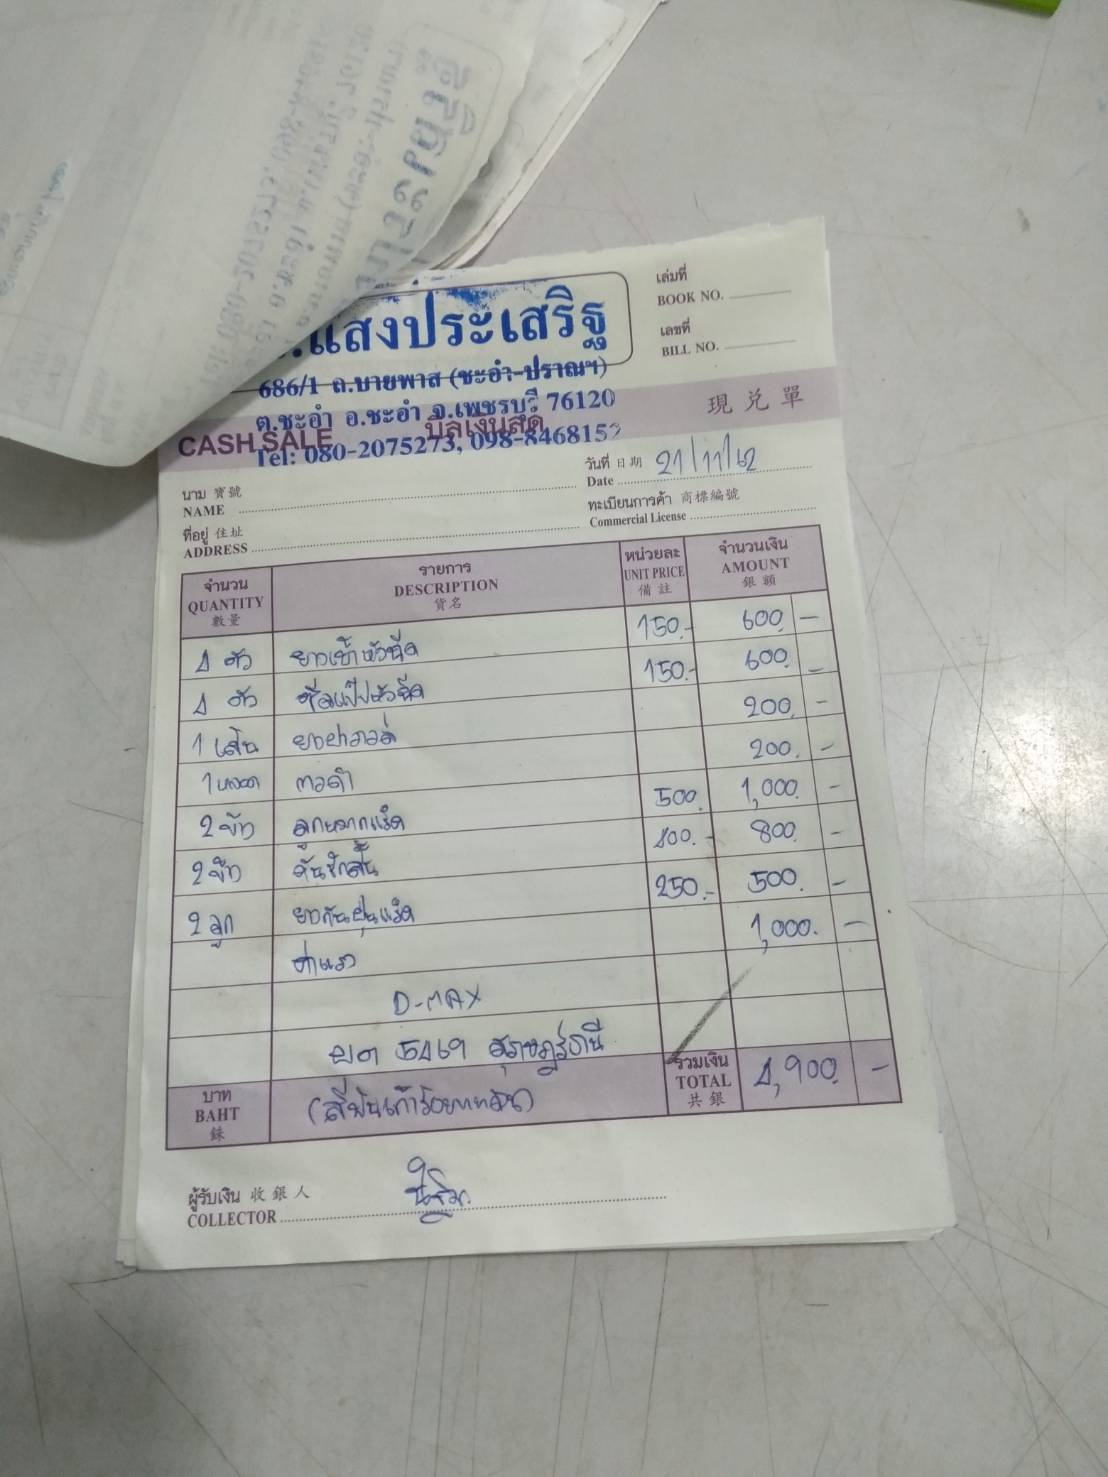 .แสงประเสริฐ
686/1 ถ.บายพาส (ชะอำ-ปราณฯ)
ต.ชะอำ อ.ชะอำ จ.เพชรบุรี 76120
Tel: 080-2075273, 098-8468159
เล่มที่
BOOK NO.
เลขที่
BILL NO.
CASH SALE บิลเงินสด 現兌單
วันที่ 日期 21/11/62
Date
นาม 寶號
NAME
ทะเบียนการค้า 商標編號
Commercial License
ที่อยู่ 住址
ADDRESS
จำนวน รายการ หน่วยละ จำนวนเงิน
QUANTITY DESCRIPTION UNIT PRICE AMOUNT
數量 貨名 備註 銀額
4 ตัว ยางเบ้าหัวฉีด 150.- 600.-
4 ตัว หัวฉีด 150.- 600.-
1 เส้น ยางฝาวาล์ว 200.-
1 หลอด กาวดำ 200.-
2 ข้าง ลูกหมากแร็ค 500. 1,000.-
2 ข้าง คันชักสั้น 400.- 800.-
2 ลูก ยางกันฝุ่นแร็ค 250.- 500.-
ค่าแรง 1,000.-
D-MAX
5469 สุราษฎร์ธานี
บาท (สี่พันเก้าร้อยบาทถ้วน) รวมเงิน 4,900.-
BAHT TOTAL
銖 共銀
ผู้รับเงิน 收銀人
COLLECTOR